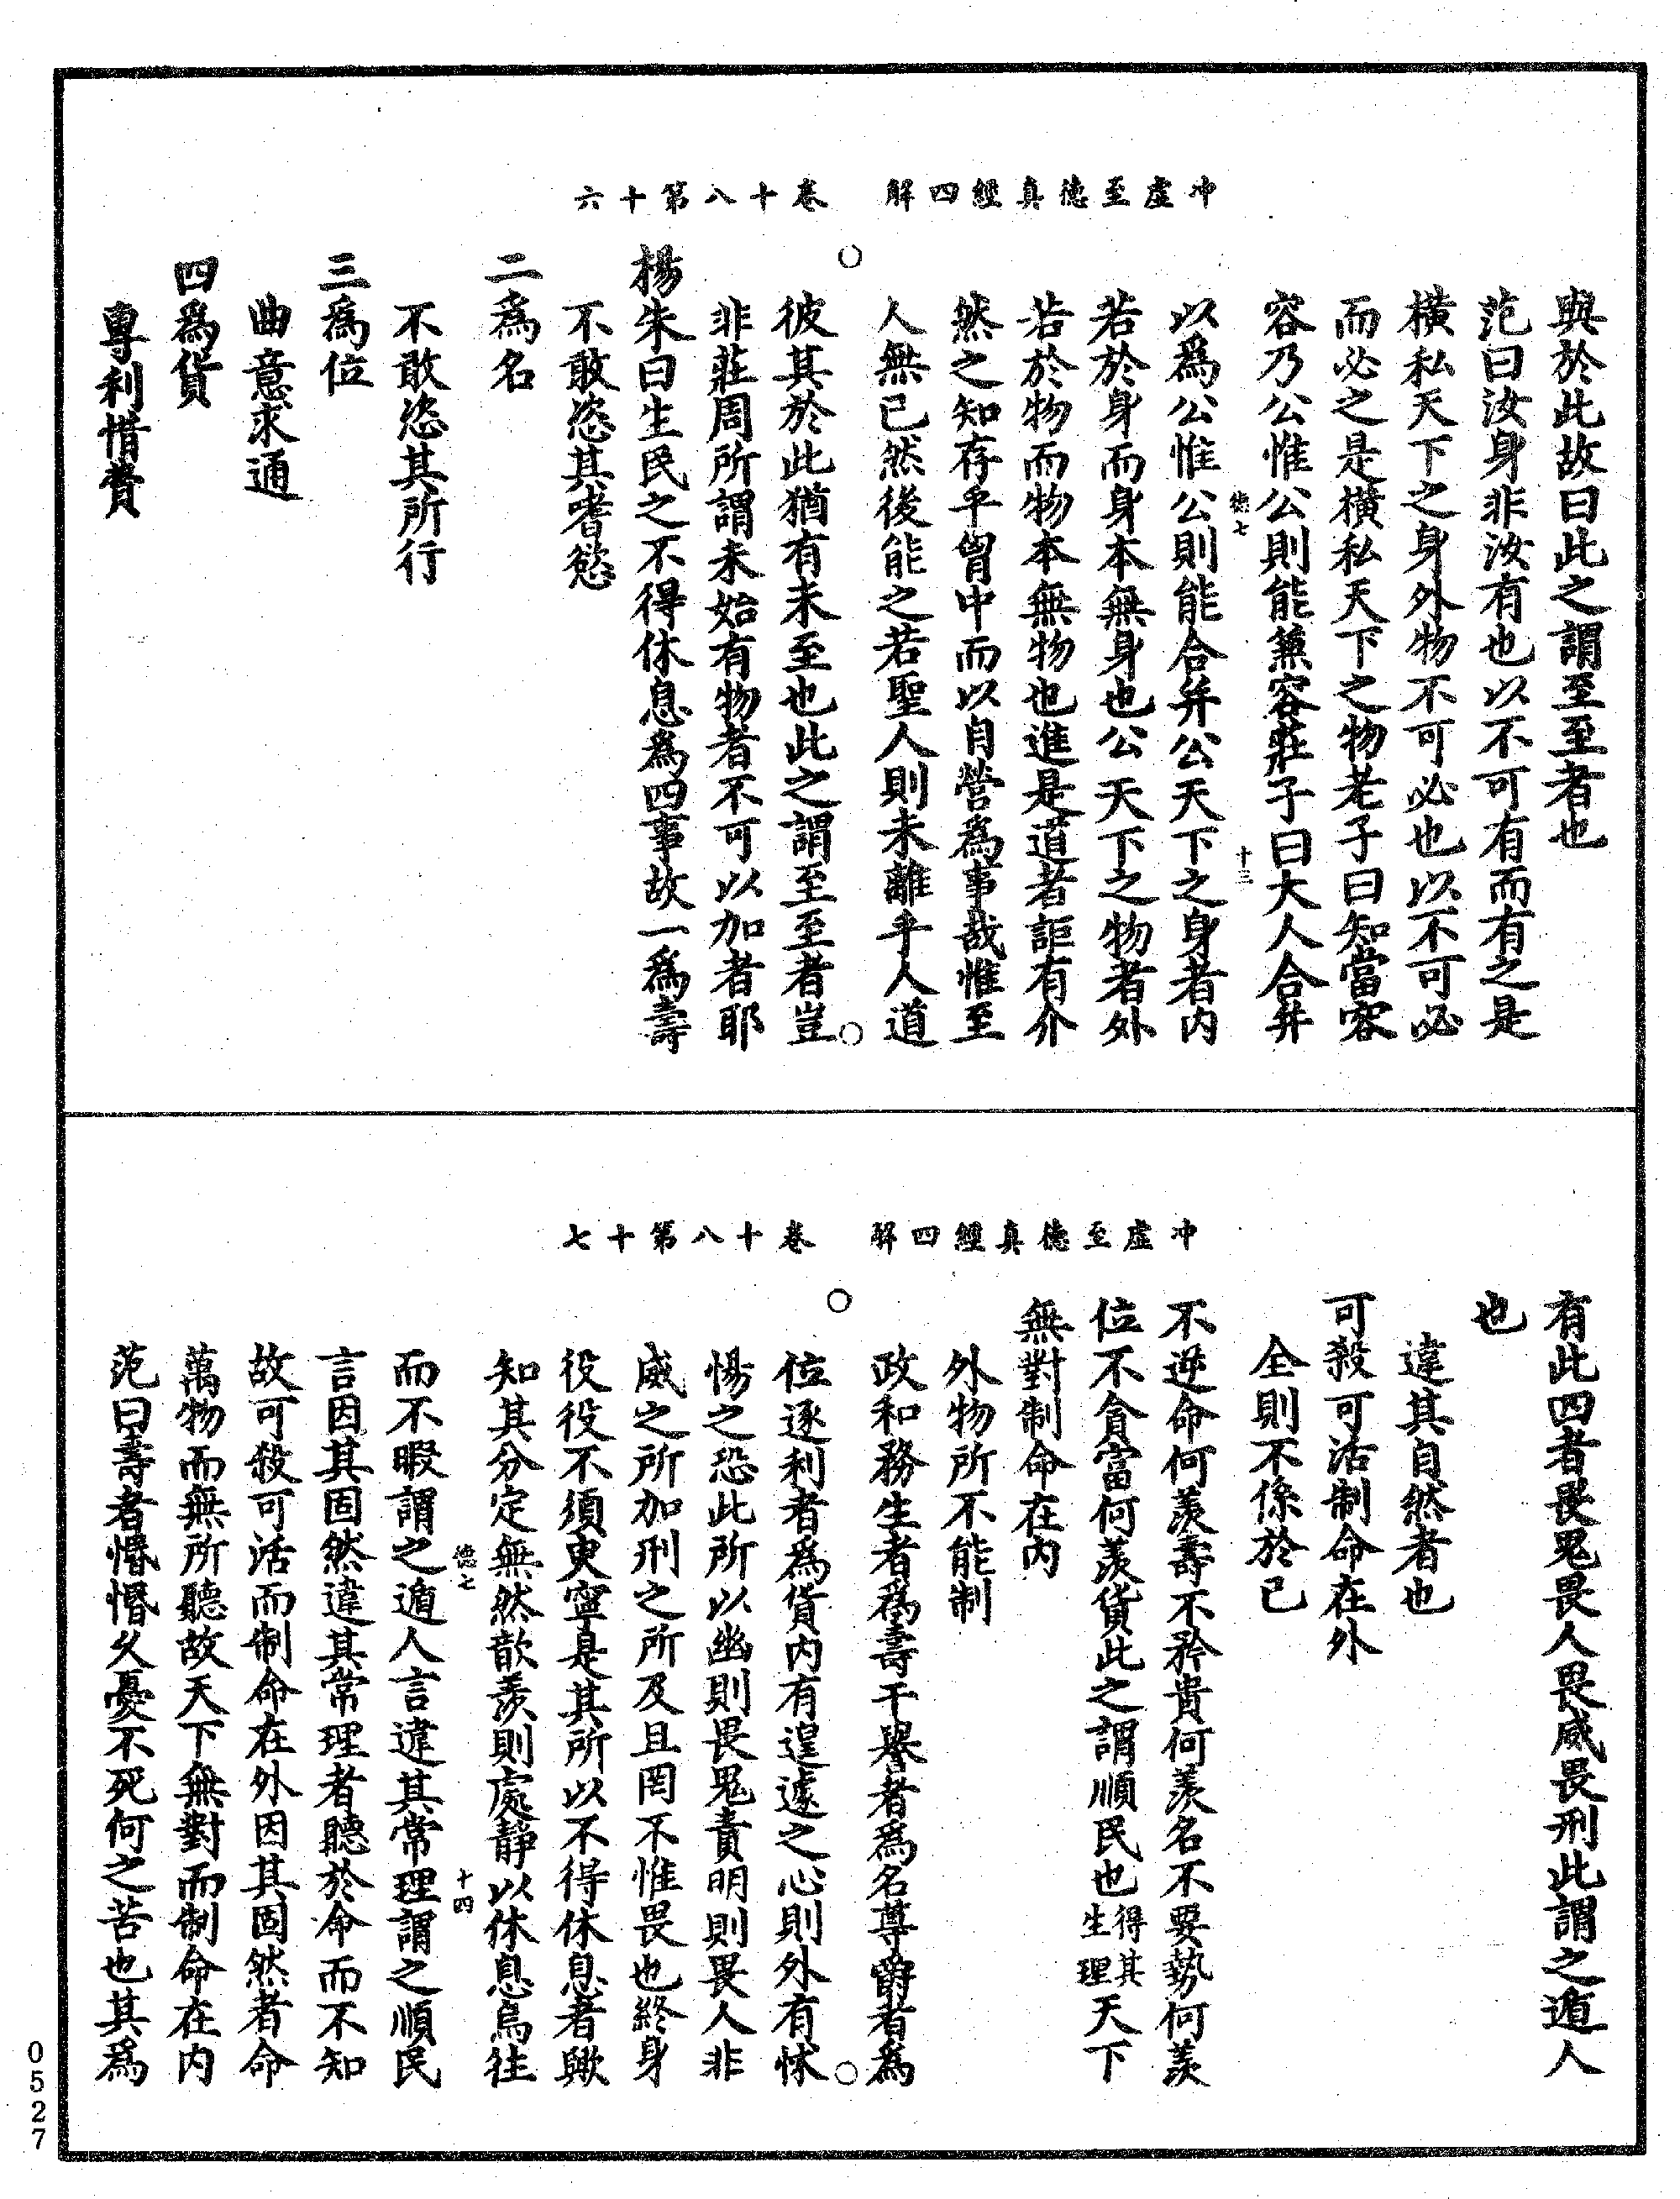 冲虛至德真經四解　卷十八第十六
與於此故曰此之謂至至者也
范曰汝身非汝有也以不可有而有之是
橫私天下之身外物不可必也以不可必
而必之是橫私天下之物老子曰知當容
容乃公惟公則能兼容莊子曰大人合并
德七　十三
以爲公惟公則能合并公天下之身者內
若於身而身本無身也公天下之物者外
若於物而物本無物也進是道者詎有介
然之知存乎胷中而以自營爲事哉惟至
人無已然後能之若聖人則未離乎人道
彼其於此猶有未至也此之謂至至者豈
非莊周所謂未始有物者不可以加者耶
楊朱曰生民之不得休息爲四事故一爲壽
不敢恣其嗜慾
二爲名
不敢恣其所行
三爲位
曲意求通
四爲貨
專利惜費
冲虛至德真經四解　卷十八第十七
有此四者畏鬼畏人畏威畏刑此謂之遁人
也
違其自然者也
可殺可活制命在外
全則不係於已
不逆命何羨壽不矜貴何羨名不要勢何羨
位不貪富何羨貨此之謂順民也得其生理天下
無對制命在內
外物所不能制
政和務生者爲壽干譽者爲名尊爵者爲
位逐利者爲貨內有遑遽之心則外有怵
惕之恐此所以幽則畏鬼責明則畏人非
威之所加刑之所及且罔不惟畏也終身
役役不須臾寧是其所以不得休息者歟
知其分定無然歆羨則處靜以休息烏往
德七　十四
而不暇謂之遁人言違其常理謂之順民
言因其固然違其常理者聽於命而不知
故可殺可活而制命在外因其固然者命
萬物而無所聽故天下無對而制命在內
范曰壽者惛惛久憂不死何之苦也其爲
0527